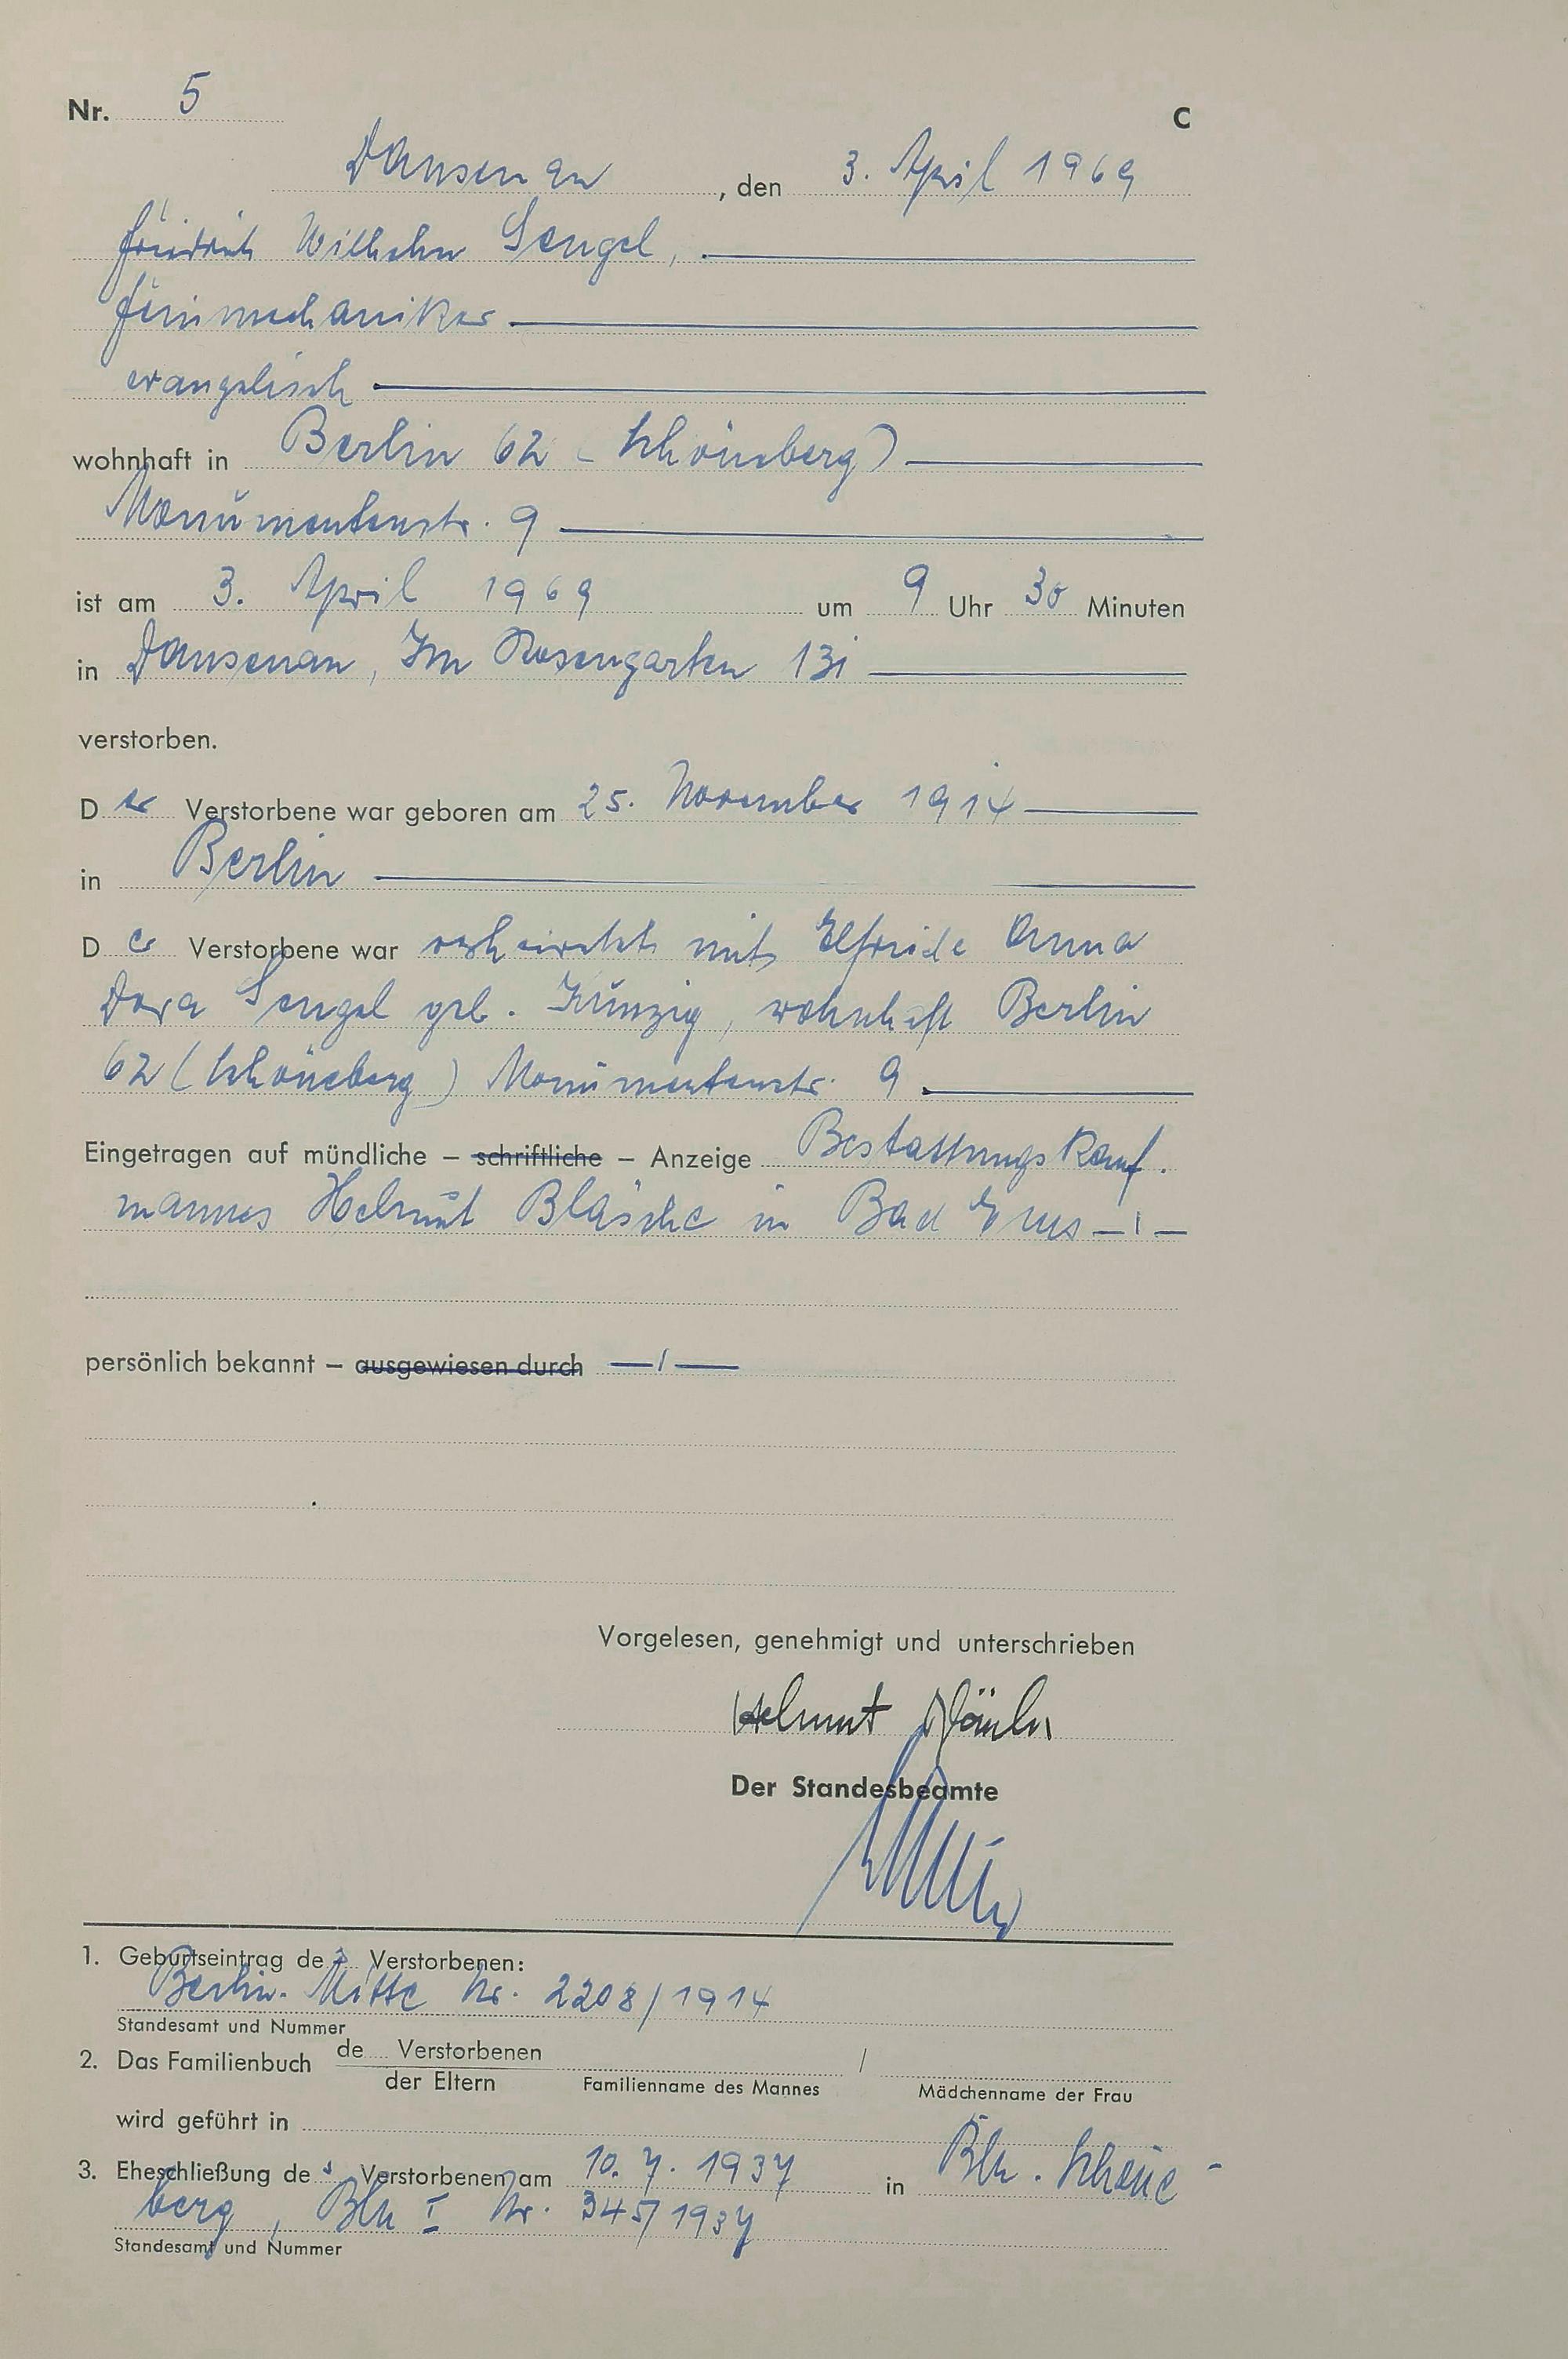 Nr. 5 C
Dausenau, den 3. April 1969
Friedrich Wilhelm Sengel,
Feinmechaniker
evangelisch
wohnhaft in Berlin 62 (Schöneberg)
Monumentenstr. 9
ist am 3. April 1969 um 9 Uhr 30 Minuten
in Dausenau, Im Rosengarten 13i
verstorben.
Der Verstorbene war geboren am 25. November 1914
in Berlin
Der Verstorbene war verheiratet mit Elfriede Anna
Dora Sengel geb. Künzig, wohnhaft Berlin
62 (Schöneberg) Monumentenstr. 9
Eingetragen auf mündliche – schriftliche – Anzeige Bestattungskauf-
mannes Helmut Bläsche in Bad Ems
persönlich bekannt – ausgewiesen durch
Vorgelesen, genehmigt und unterschrieben
Helmut
Der Standesbeamte
1. Geburtseintrag des Verstorbenen:
Berlin-Mitte Nr. 2208/1914
Standesamt und Nummer
2. Das Familienbuch de Verstorbenen /
der Eltern Familienname des Mannes Mädchenname der Frau
wird geführt in
3. Eheschließung des Verstorbenen am 10.7.1937 in Bln. Schöne-
berg, Bln I Nr. 345/1937
Standesamt und Nummer